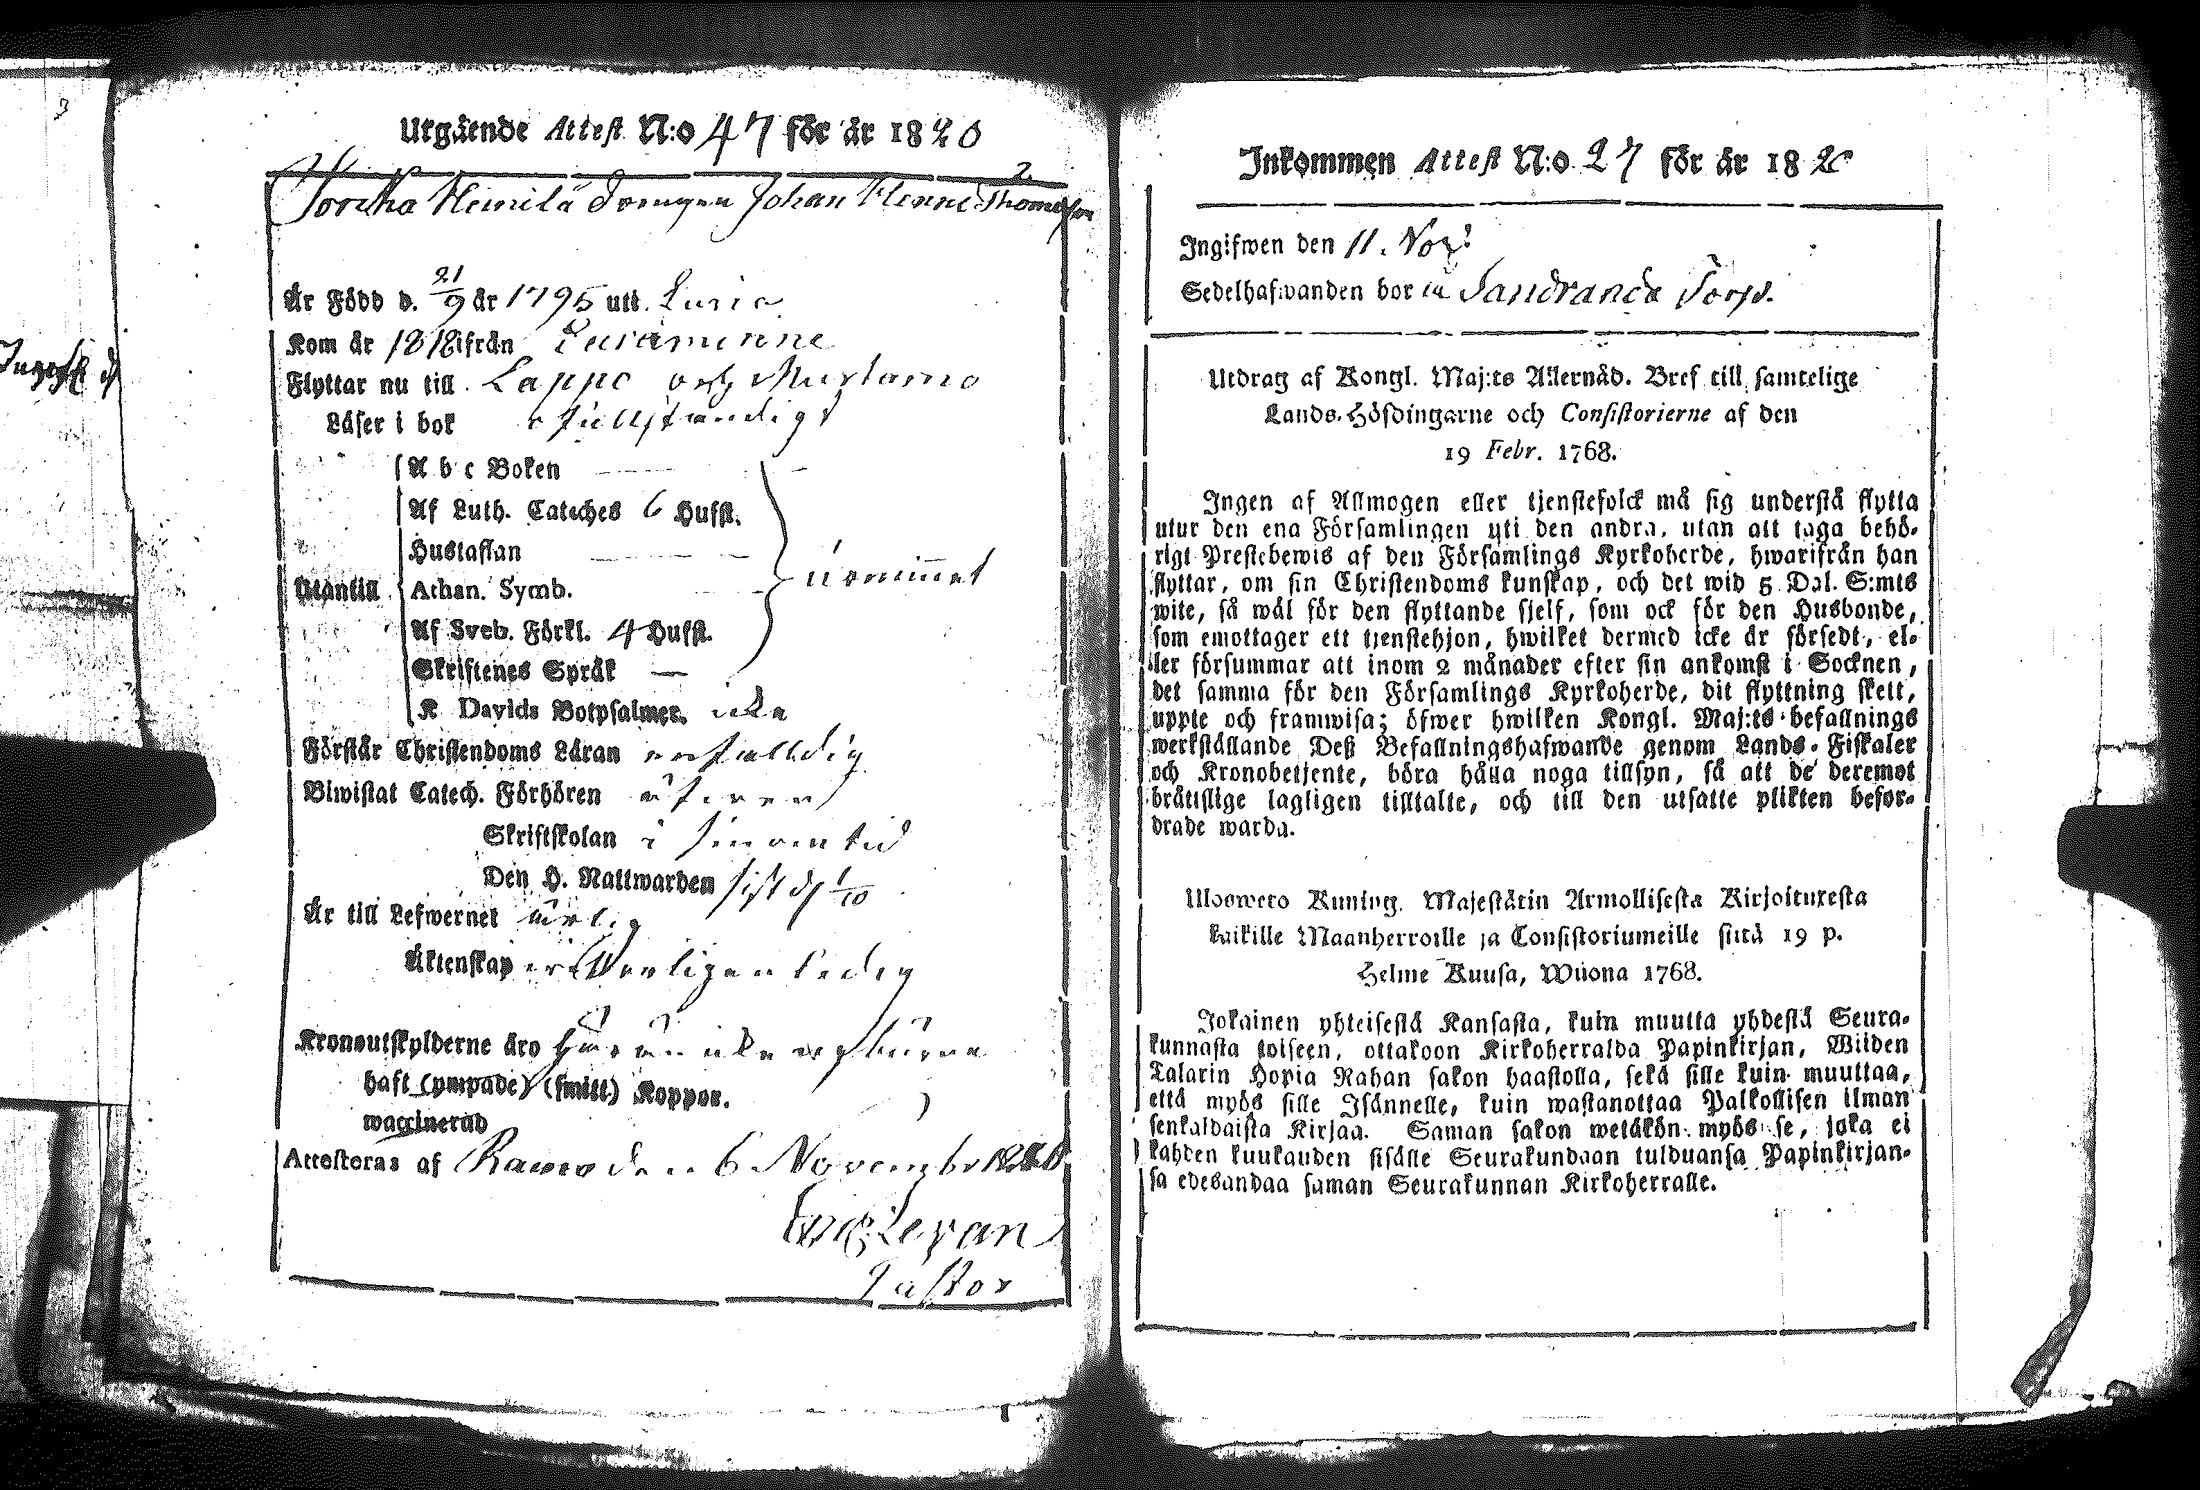 3
Utgående Attest N:o 47 för år 1820
2
Heinilä Drengen Johan Henric Thomasson
Är Född d. 21/9 år 1795 uti
Kom år 1818 ifrån
Flyttar nu till Lappo och
Läser i bok fullständigt
A b c Boken
Af Luth. Cateches 6 Hufst.
Hustaflan
Utantill Athan. Symb.
Af Sveb. Förkl. 4 Hufst.
Skriftenes Språk —
K Davids Botpsalmer. icke
Förstår Christendoms Läran enfaldig
Biwistat Catech. Förhören
Skriftskolan i sinom tid
Den H. Nattwarden sist d 1/10
Är till Lefwernet ärlig
Äktenskap ledig
Kronoutskylderne äro
haft (ympade) (smitt.) Koppor.
waccinerad
Attesteras af Raumo den 6 November 1820
Pastor
Inkommen Attest N:o 27 för år 1820
Ingifwen den 11. Nov:
Sedelhafwanden bor Sandranda Torp.
Utdrag af Kongl. Maj:ts Allernåd. Bref till samtelige
Lands-Höfdingarne och Consistorierne af den
19 Febr. 1768.
Ingen af Allmogen eller tjenstefolck må sig understå flytta
utur den ena Församlingen uti den andra, utan att taga behö-
rigt Prestebewis af den Församlings Kyrkoherde, hwarifrån han
flyttar, om sin Christendoms kunskap, och det wid 5 Dal. S:mts
wite, så wäl för den flyttande sjelf, som ock för den Husbonde,
som emottager ett tjenstehjon, hwilket dermed icke är försedt, el-
ler försummar att inom 2 månader efter sin ankomst i Socknen,
det samma för den Församlings Kyrkoherde, dit flyttning skett,
uppte och framwisa; öfwer hwilken Kongl. Maj:ts befallnings
werkställande Deß Befallningshafwande genom Lands-Fiskaler
och Kronobetjente, böra hålla noga tillsyn, så att de deremot
bråtislige lagligen tilltalte, och till den utsatte plikten befor-
drade warda.
Ulosweto Kuning. Majestätin Armollisesta Kirjoituxesta
kaikille Maanherroille ja Consistoriumeille siitä 19 p.
Helme Kuusa, Wuona 1768.
Jokainen yhteisestä Kansasta, kuin muutta yhdestä Seura-
kunnasta toiseen, ottakoon Kirkoherralda Papinkirjan, Wiiden
Talarin Hopia Rahan sakon haastolla, sekä sille kuin muuttaa,
että myös sille Isännelle, kuin wastanottaa Palkollisen ilman
senkaldaista Kirjaa. Saman sakon wetäkön myös se, joka ei
kahden kuukauden sisälle Seurakundaan tulduansa Papinkirjan-
sa edesandaa saman Seurakunnan Kirkoherralle.